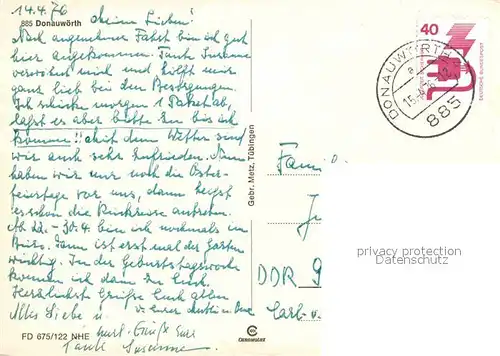 14.4.76 Meine Lieben!
885 Donauwörth
Nach angenehmer Fahrt bin ich gut
hier angekommen. Tante Susanne
verwöhnt mich und hilft mir
ganz lieb bei den Besorgungen.
Ich schicke morgen 1 Paket ab,
laßt es aber bitte zu bis ich
komme!! Mit dem Wetter sind
wir auch sehr zufrieden. Nun
haben wir nur noch die Oster-
feiertage vor uns, dann heißt
es schon die Rückreise antreten.
Ab 22. - 30.4. bin ich nochmals im
Büro. Dann ist erst mal der Garten
wichtig. In der Geburtstagswoche
komme ich dann zu Euch.
Herzlichst Grüße Euch allen
Alles Liebe u.
Grüße Eure
Tante Susanne
FD 675/122 NHE
Gebr. Metz, Tübingen
40
DEUTSCHE BUNDESPOST
DONAUWÖRTH
885
Fami
DDR 9
privacy protection
Datenschutz